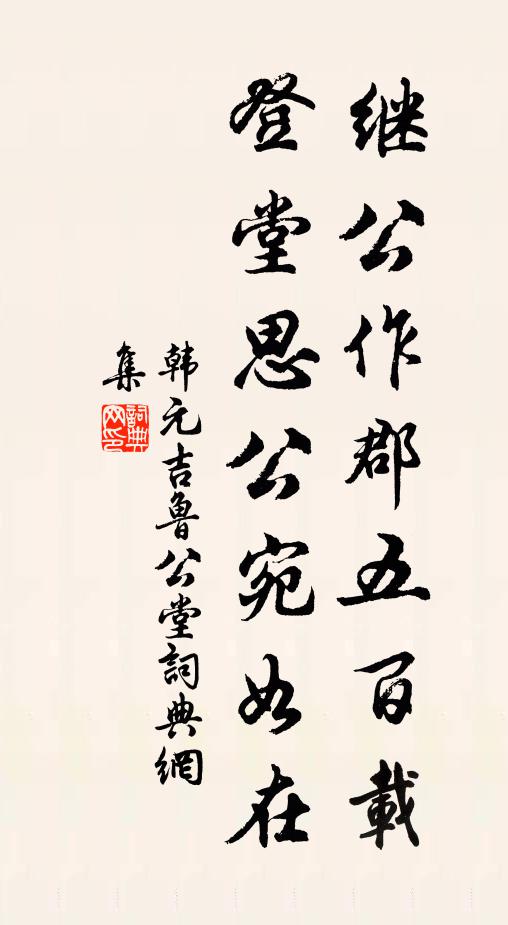 继公作郡五百載
登堂思公宛如在
韩元吉魯公堂詞典網
集
詞典
网印